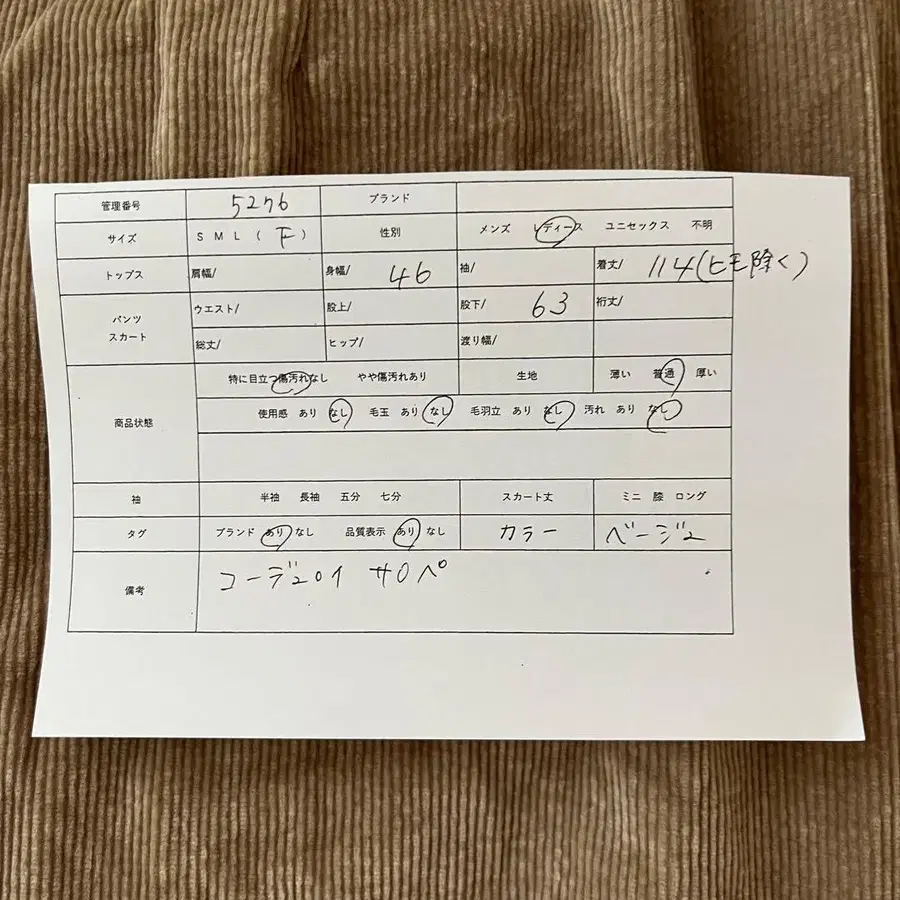 管理番号 5276 ブランド
サイズ S M L ( F ) 性別 メンズ レディース ユニセックス 不明
トップス 肩幅/ 身幅/ 46 袖/ 着丈/ 114(ヒモ除く)
パンツ スカート
ウエスト/ 股上/ 股下/ 63 裄丈/
総丈/ ヒップ/ 渡り幅/
商品状態
特に目立つ傷汚れなし やや傷汚れあり 生地 薄い 普通 厚い
使用感 あり なし 毛玉 あり なし 毛羽立 あり なし 汚れ あり なし
袖 半袖 長袖 五分 七分 スカート丈 ミニ 膝 ロング
タグ ブランド あり なし 品質表示 あり なし カラー ベージュ
備考 コーデュロイ サロペ